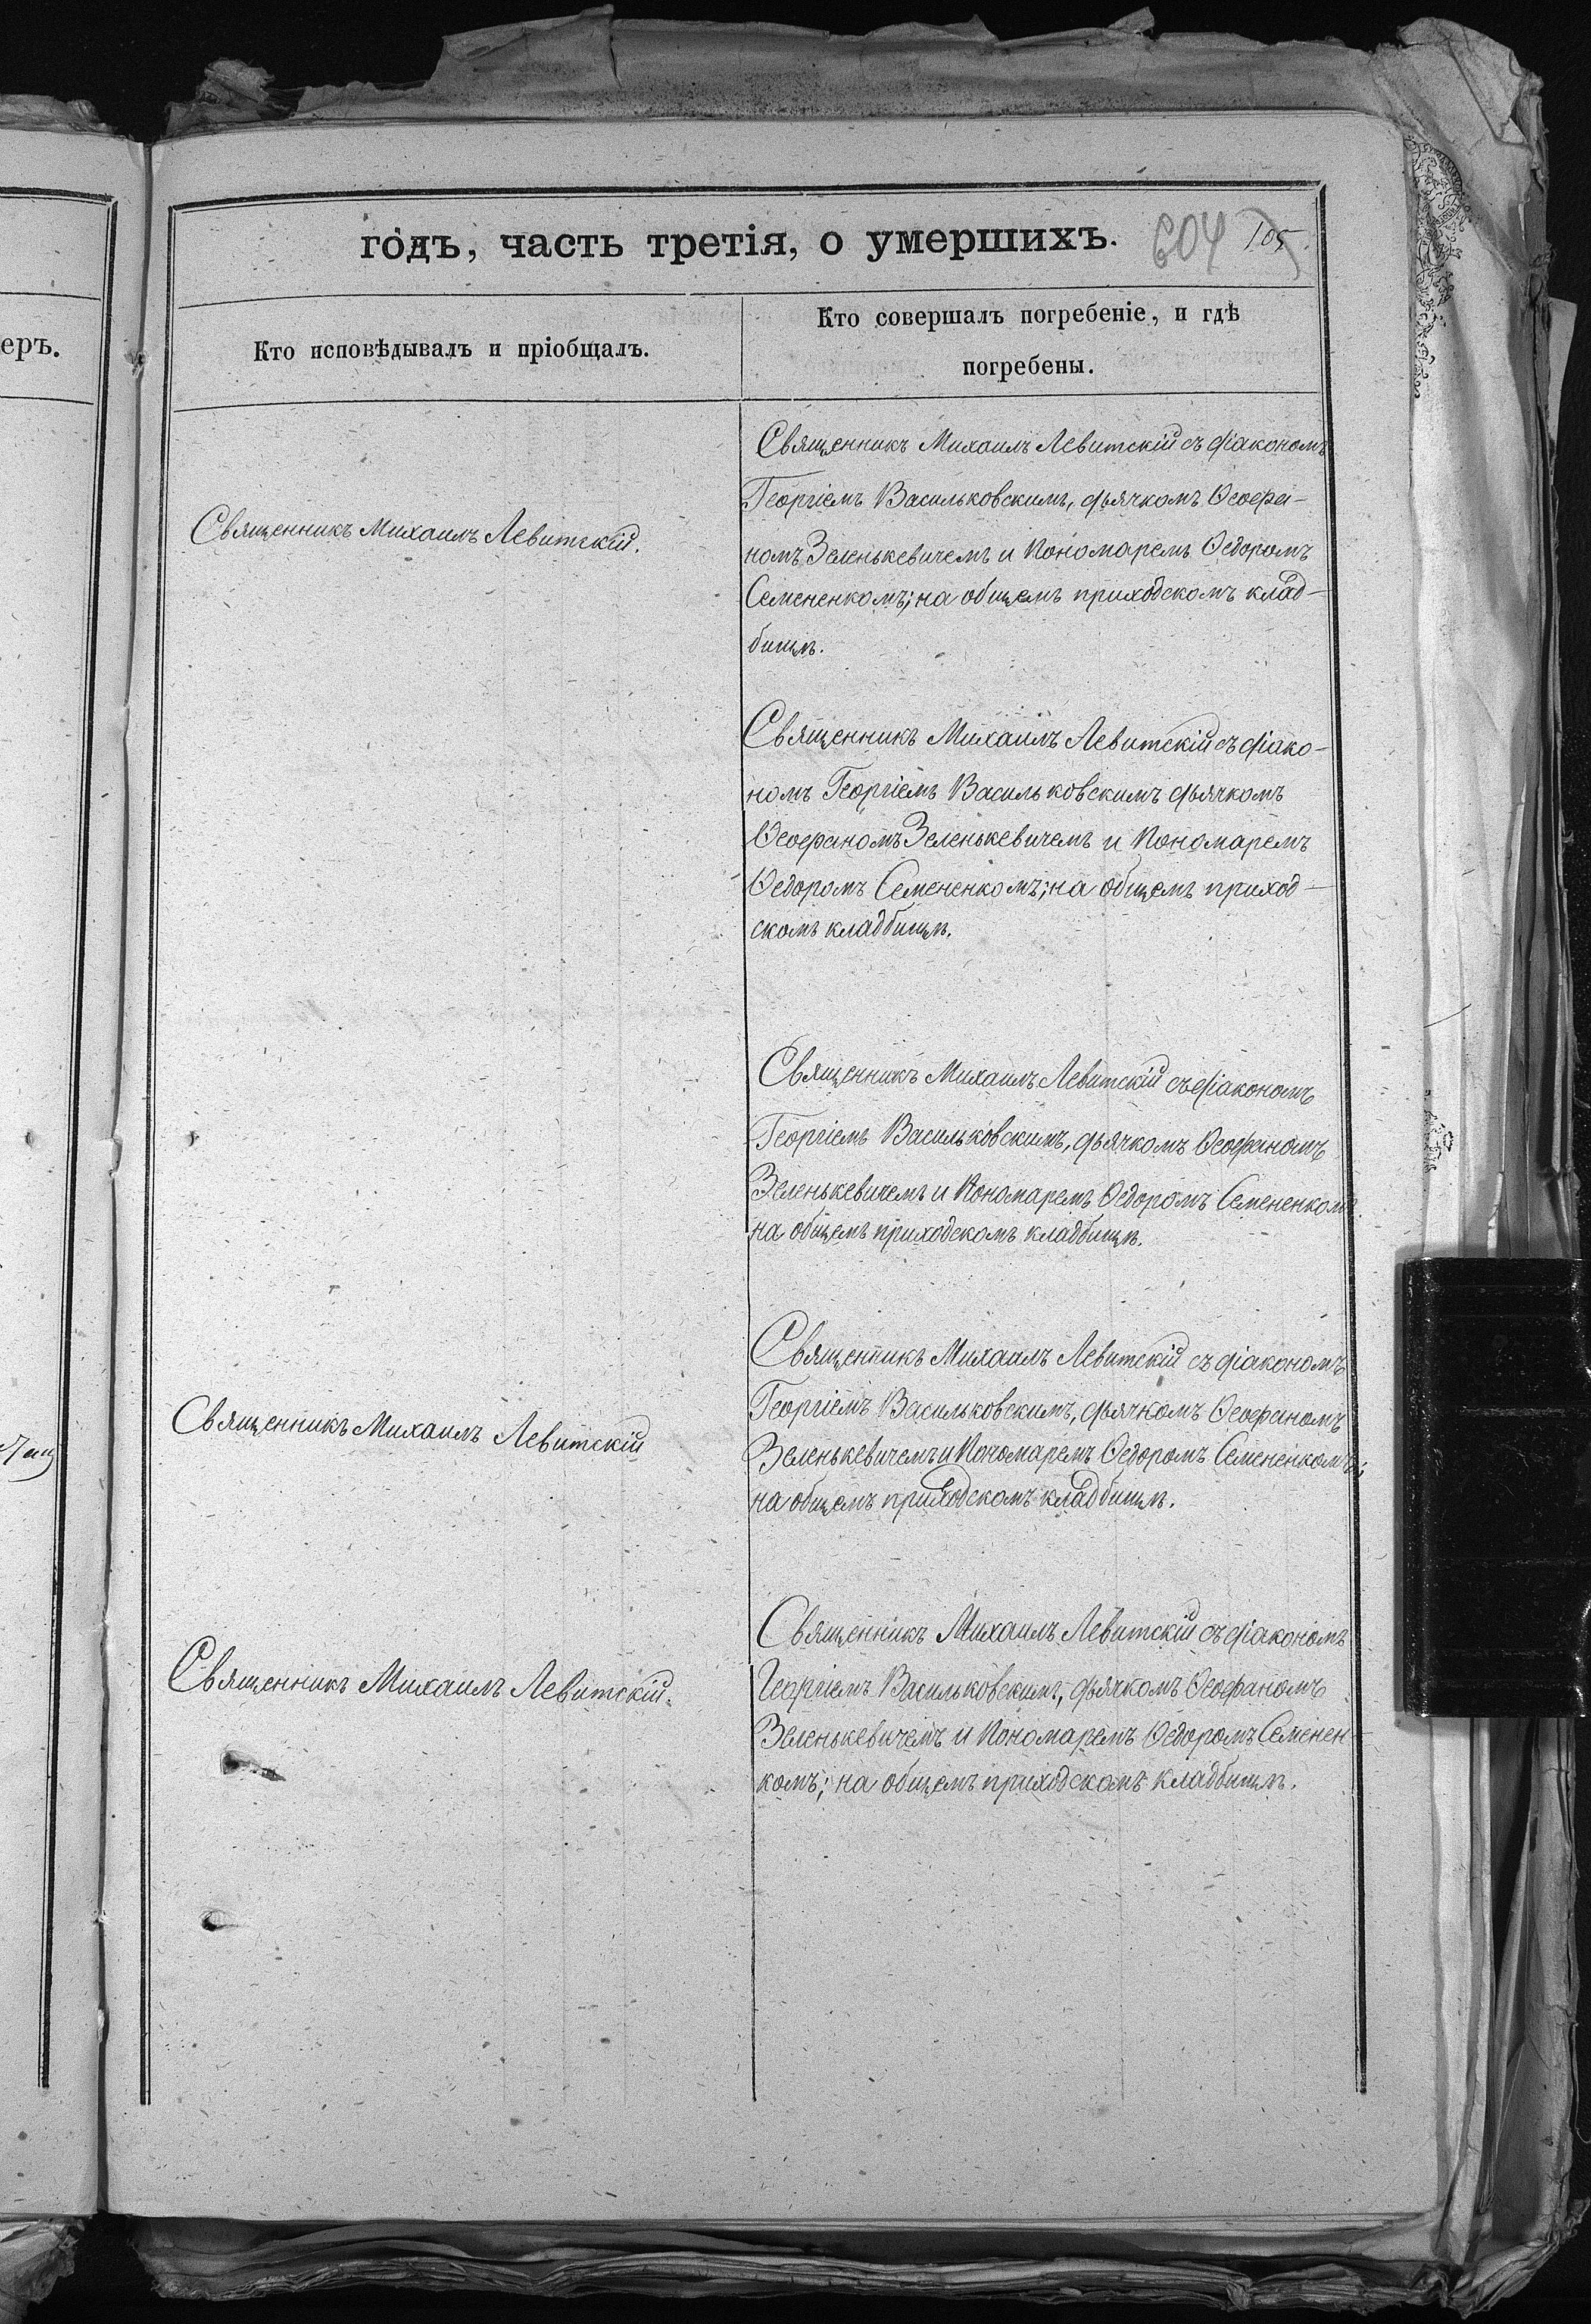 годъ, часть третія, о умершихъ.
604 105
еръ.
Кто исповѣдывалъ и пріобщалъ.
Кто совершалъ погребеніе, и гдѣ
погребены.
Священникъ Михаилъ Левитскій съ діакономъ
Георгіемъ Васильковскимъ, дьячкомъ Ѳеофа-
Священникъ Михаилъ Левитскій.
номъ Зеленькевичемъ и Пономаремъ Ѳедоромъ
Семененкомъ; на общемъ приходскомъ клад-
бищѣ.
Священникъ Михаилъ Левитскій съ діако-
номъ Георгіемъ Васильковскимъ дьячкомъ
Ѳеофаномъ Зеленькевичемъ и Пономаремъ
Ѳедоромъ Семененкомъ; на общемъ приход-
скомъ кладбищѣ.
Священникъ Михаилъ Левитскій съ діакономъ
Георгіемъ Васильковскимъ, дьячкомъ Ѳеофаномъ
Зеленькевичемъ и Пономаремъ Ѳедоромъ Семененкомъ
на общемъ приходскомъ кладбищѣ.
Священникъ Михаилъ Левитскій съ діакономъ
Георгіемъ Васильковскимъ, дьячкомъ Ѳеофаномъ
Священникъ Михаилъ Левитскій
Зеленькевичемъ и Пономаремъ Ѳедоромъ Семененкомъ;
на общемъ приходскомъ кладбищѣ.
Священникъ Михаилъ Левитскій съ діакономъ
Священникъ Михаилъ Левитскій.
Георгіемъ Васильковскимъ, дьячкомъ Ѳеофаномъ
Зеленькевичемъ и Пономаремъ Ѳедоромъ Семенен-
комъ; на общемъ приходскомъ кладбищѣ.